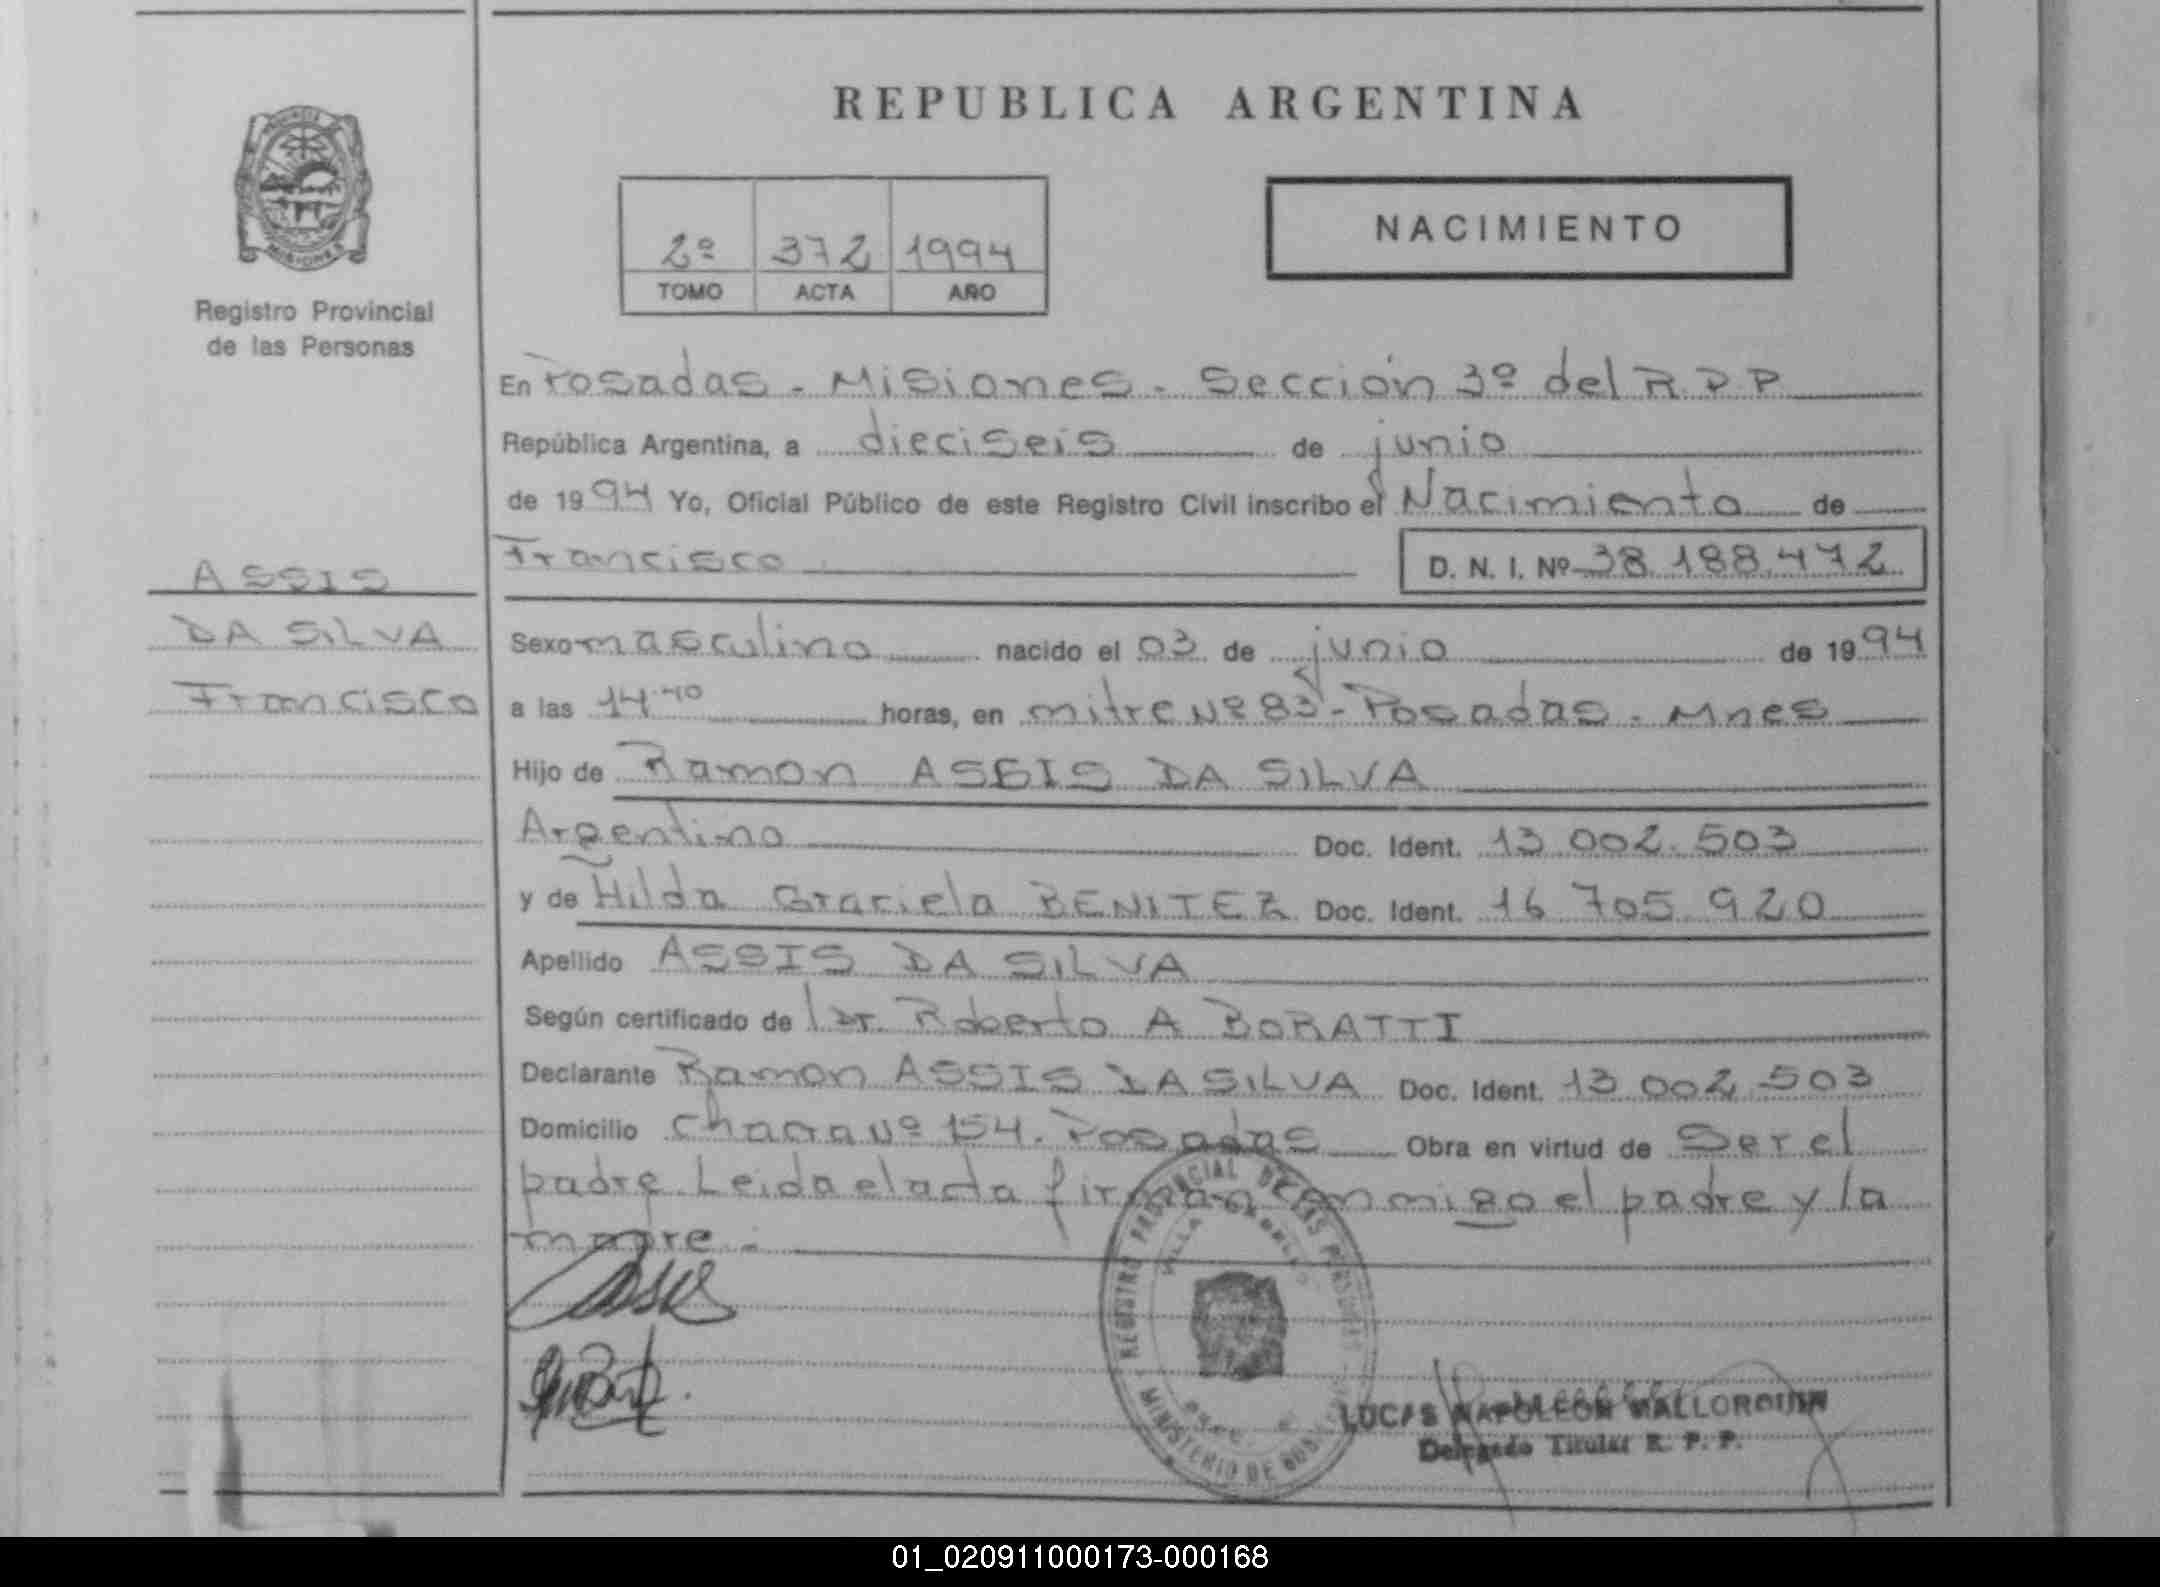 REPUBLICA ARGENTINA
NACIMIENTO
2º 372 1994
TOMO ACTA AÑO
Registro Provincial
de las Personas
En Posadas - Misiones - Sección 3º del R.P.P.
República Argentina, a dieciseis de junio
de 1994 Yo, Oficial Público de este Registro Civil inscribo el Nacimiento de
Francisco D. N. I. Nº 38.188.472
ASSIS
DA SILVA
Francisco
Sexo masculino nacido el 03 de junio de 1994
a las 14.40 horas, en mitre Nº 83 - Posadas - Mnes
Hijo de Ramon ASSIS DA SILVA
Argentino Doc. Ident. 13.002.503
y de Hilda Graciela BENITEZ Doc. Ident. 16 705 920
Apellido ASSIS DA SILVA
Según certificado de Dr. Roberto A BORATTI
Declarante Ramon ASSIS DA SILVA Doc. Ident. 13 002 503
Domicilio Chacra Nº 154. Posadas Obra en virtud de Ser el
padre Leida el acta firman conmigo el padre y la
madre.-
REGISTRO PROVINCIAL DE LAS PERSONAS
VILLA
MINISTERIO DE
LUCAS NAPOLEON MALLORQUIN
Delegado Titular R. P. P.
01_020911000173-000168